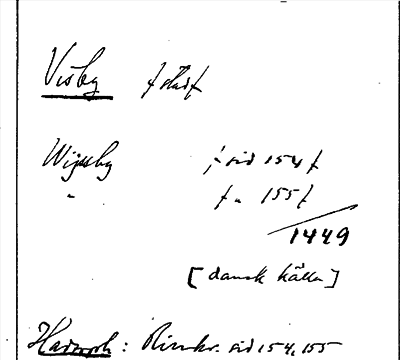 Visby
Wijsby / sid 154 /
" / " 155 /
1449
[dansk källa]
Hadorph: Rimkr. sid 154, 155